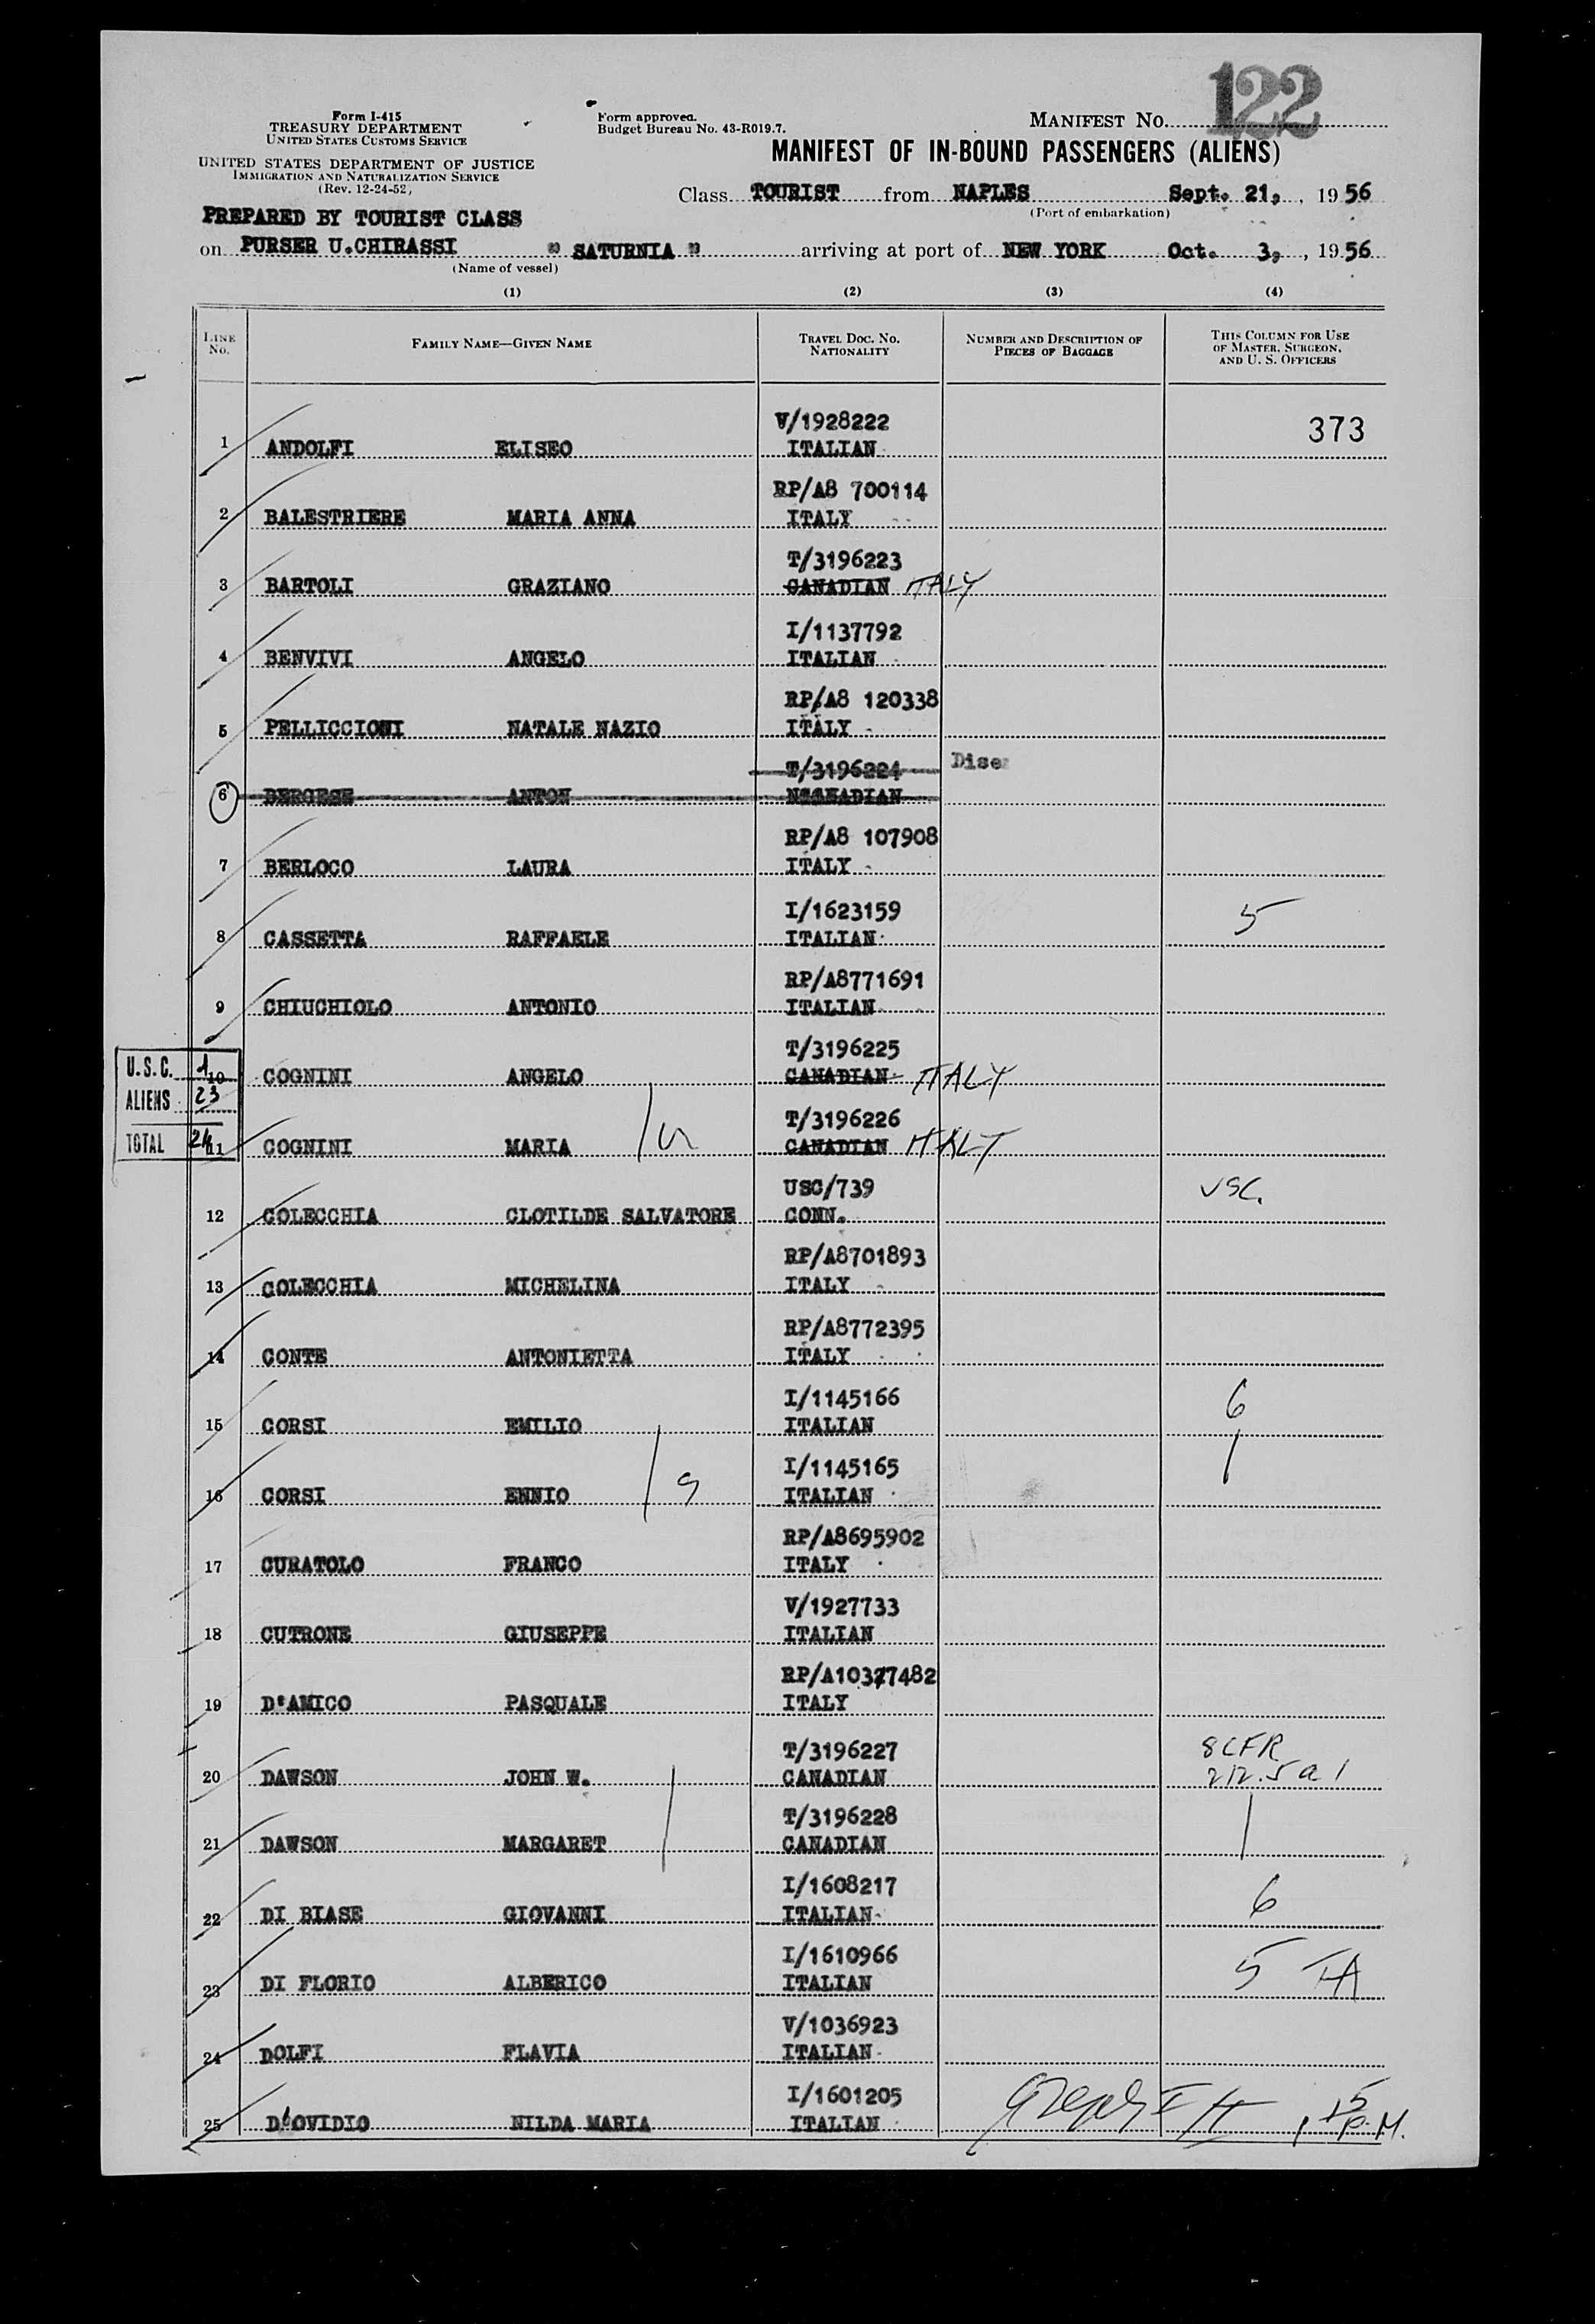 122
Form I-415
TREASURY DEPARTMENT
UNITED STATES CUSTOMS SERVICE
UNITED STATES DEPARTMENT OF JUSTICE
IMMIGRATION AND NATURALIZATION SERVICE
(Rev. 12-24-52)
Form approved.
Budget Bureau No. 43-R019.7.
MANIFEST NO.
MANIFEST OF IN-BOUND PASSENGERS (ALIENS)
Class TOURIST from NAPLES Sept. 21, , 1956
(Port of embarkation)
PREPARED BY TOURIST CLASS
on PURSER U.CHIRASSI " SATURNIA " arriving at port of NEW YORK Oct. 3, , 1956
(Name of vessel)
(1) (2) (3) (4)
LINE No. FAMILY NAME—GIVEN NAME TRAVEL DOC. NO. NATIONALITY NUMBER AND DESCRIPTION OF PIECES OF BAGGAGE THIS COLUMN FOR USE OF MASTER, SURGEON, AND U. S. OFFICERS
V/1928222 373
1 ANDOLFI ELISEO ITALIAN
RP/A8 700114
2 BALESTRIERE MARIA ANNA ITALY
T/3196223
3 BARTOLI GRAZIANO CANADIAN ITALY
I/1137792
4 BENVIVI ANGELO ITALIAN
RP/A8 120338
5 PELLICCIONI NATALE NAZIO ITALY
T/3196224 Dise
6 BERGESE ANTON
RP/A8 107908
7 BERLOCO LAURA ITALY
I/1623159 5
8 CASSETTA RAFFAELE ITALIAN
RP/A8771691
9 CHIUCHIOLO ANTONIO ITALIAN
U.S.C. 1
ALIENS 23
TOTAL 24
T/3196225
10 COGNINI ANGELO CANADIAN ITALY
T/3196226
11 COGNINI MARIA CANADIAN ITALY
USC/739 USC.
12 COLECCHIA CLOTILDE SALVATORE CONN.
RP/A8701893
13 COLECCHIA MICHELINA ITALY
RP/A8772395
14 CONTE ANTONIETTA ITALY
I/1145166 6
15 CORSI EMILIO ITALIAN
I/1145165
16 CORSI ENNIO ITALIAN
RP/A8695902
17 CURATOLO FRANCO ITALY
V/1927733
18 CUTRONE GIUSEPPE ITALIAN
RP/A10377482
19 D'AMICO PASQUALE ITALY
T/3196227 8CFR
20 DAWSON JOHN W. CANADIAN 212.5 a 1
T/3196228
21 DAWSON MARGARET CANADIAN
I/1608217 6
22 DI BIASE GIOVANNI ITALIAN
I/1610966 5 TA
23 DI FLORIO ALBERICO ITALIAN
V/1036923
24 DOLFI FLAVIA ITALIAN
I/1601205
25 D'OVIDIO NILDA MARIA ITALIAN